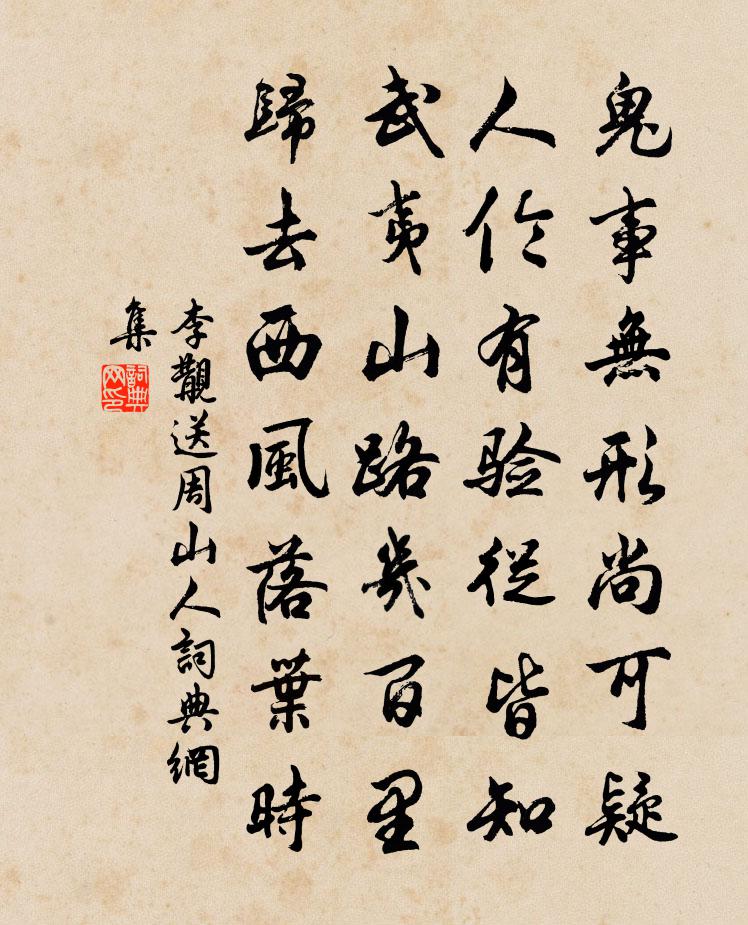 鬼事無形尚可疑
人伦有验從皆知
武夷山路幾百里
歸去西風落葉時
李覯送周山人詞典網
集
詞典
网印